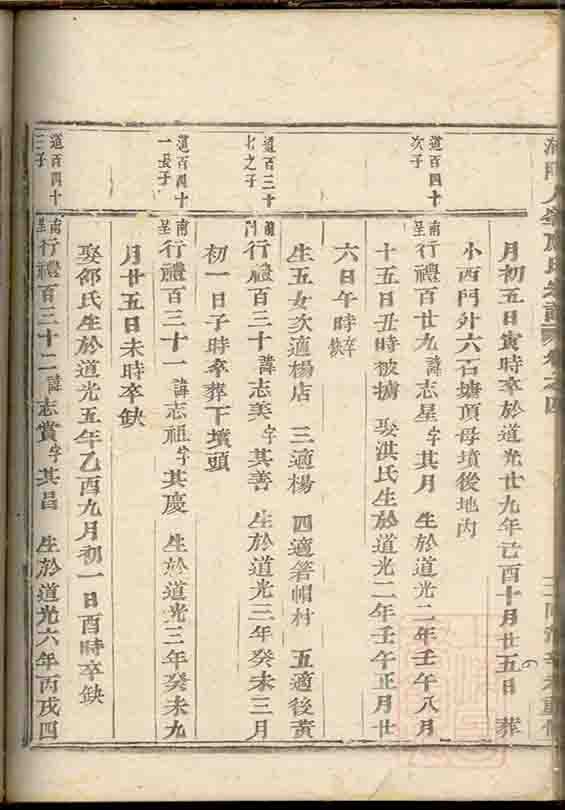 月初五日寅時卒於道光廿九年己酉十月廿五日 葬
小西門外六石塘頂母墳後地內
道百四十次子
南星行禮百廿九諱志星字其月 生於道光二年壬午八月
十五日丑時被擄 娶洪氏生於道光二年壬午正月廿
六日午時卒缺
生五女次適楊店 三適楊 四適箬帽村 五適後黃
道百三十七之子
行禮百三十諱志美字其善 生於道光三年癸未三月
初一日子時卒葬下墳頭
道百四十一長子
南星行禮百三十一諱志祖字其慶 生於道光三年癸未九
月廿五日未時卒缺
娶邵氏生於道光五年乙酉九月初一日酉時卒缺
道百四十三子
南星行禮百三十二諱志賞字其昌 生於道光六年丙戌四